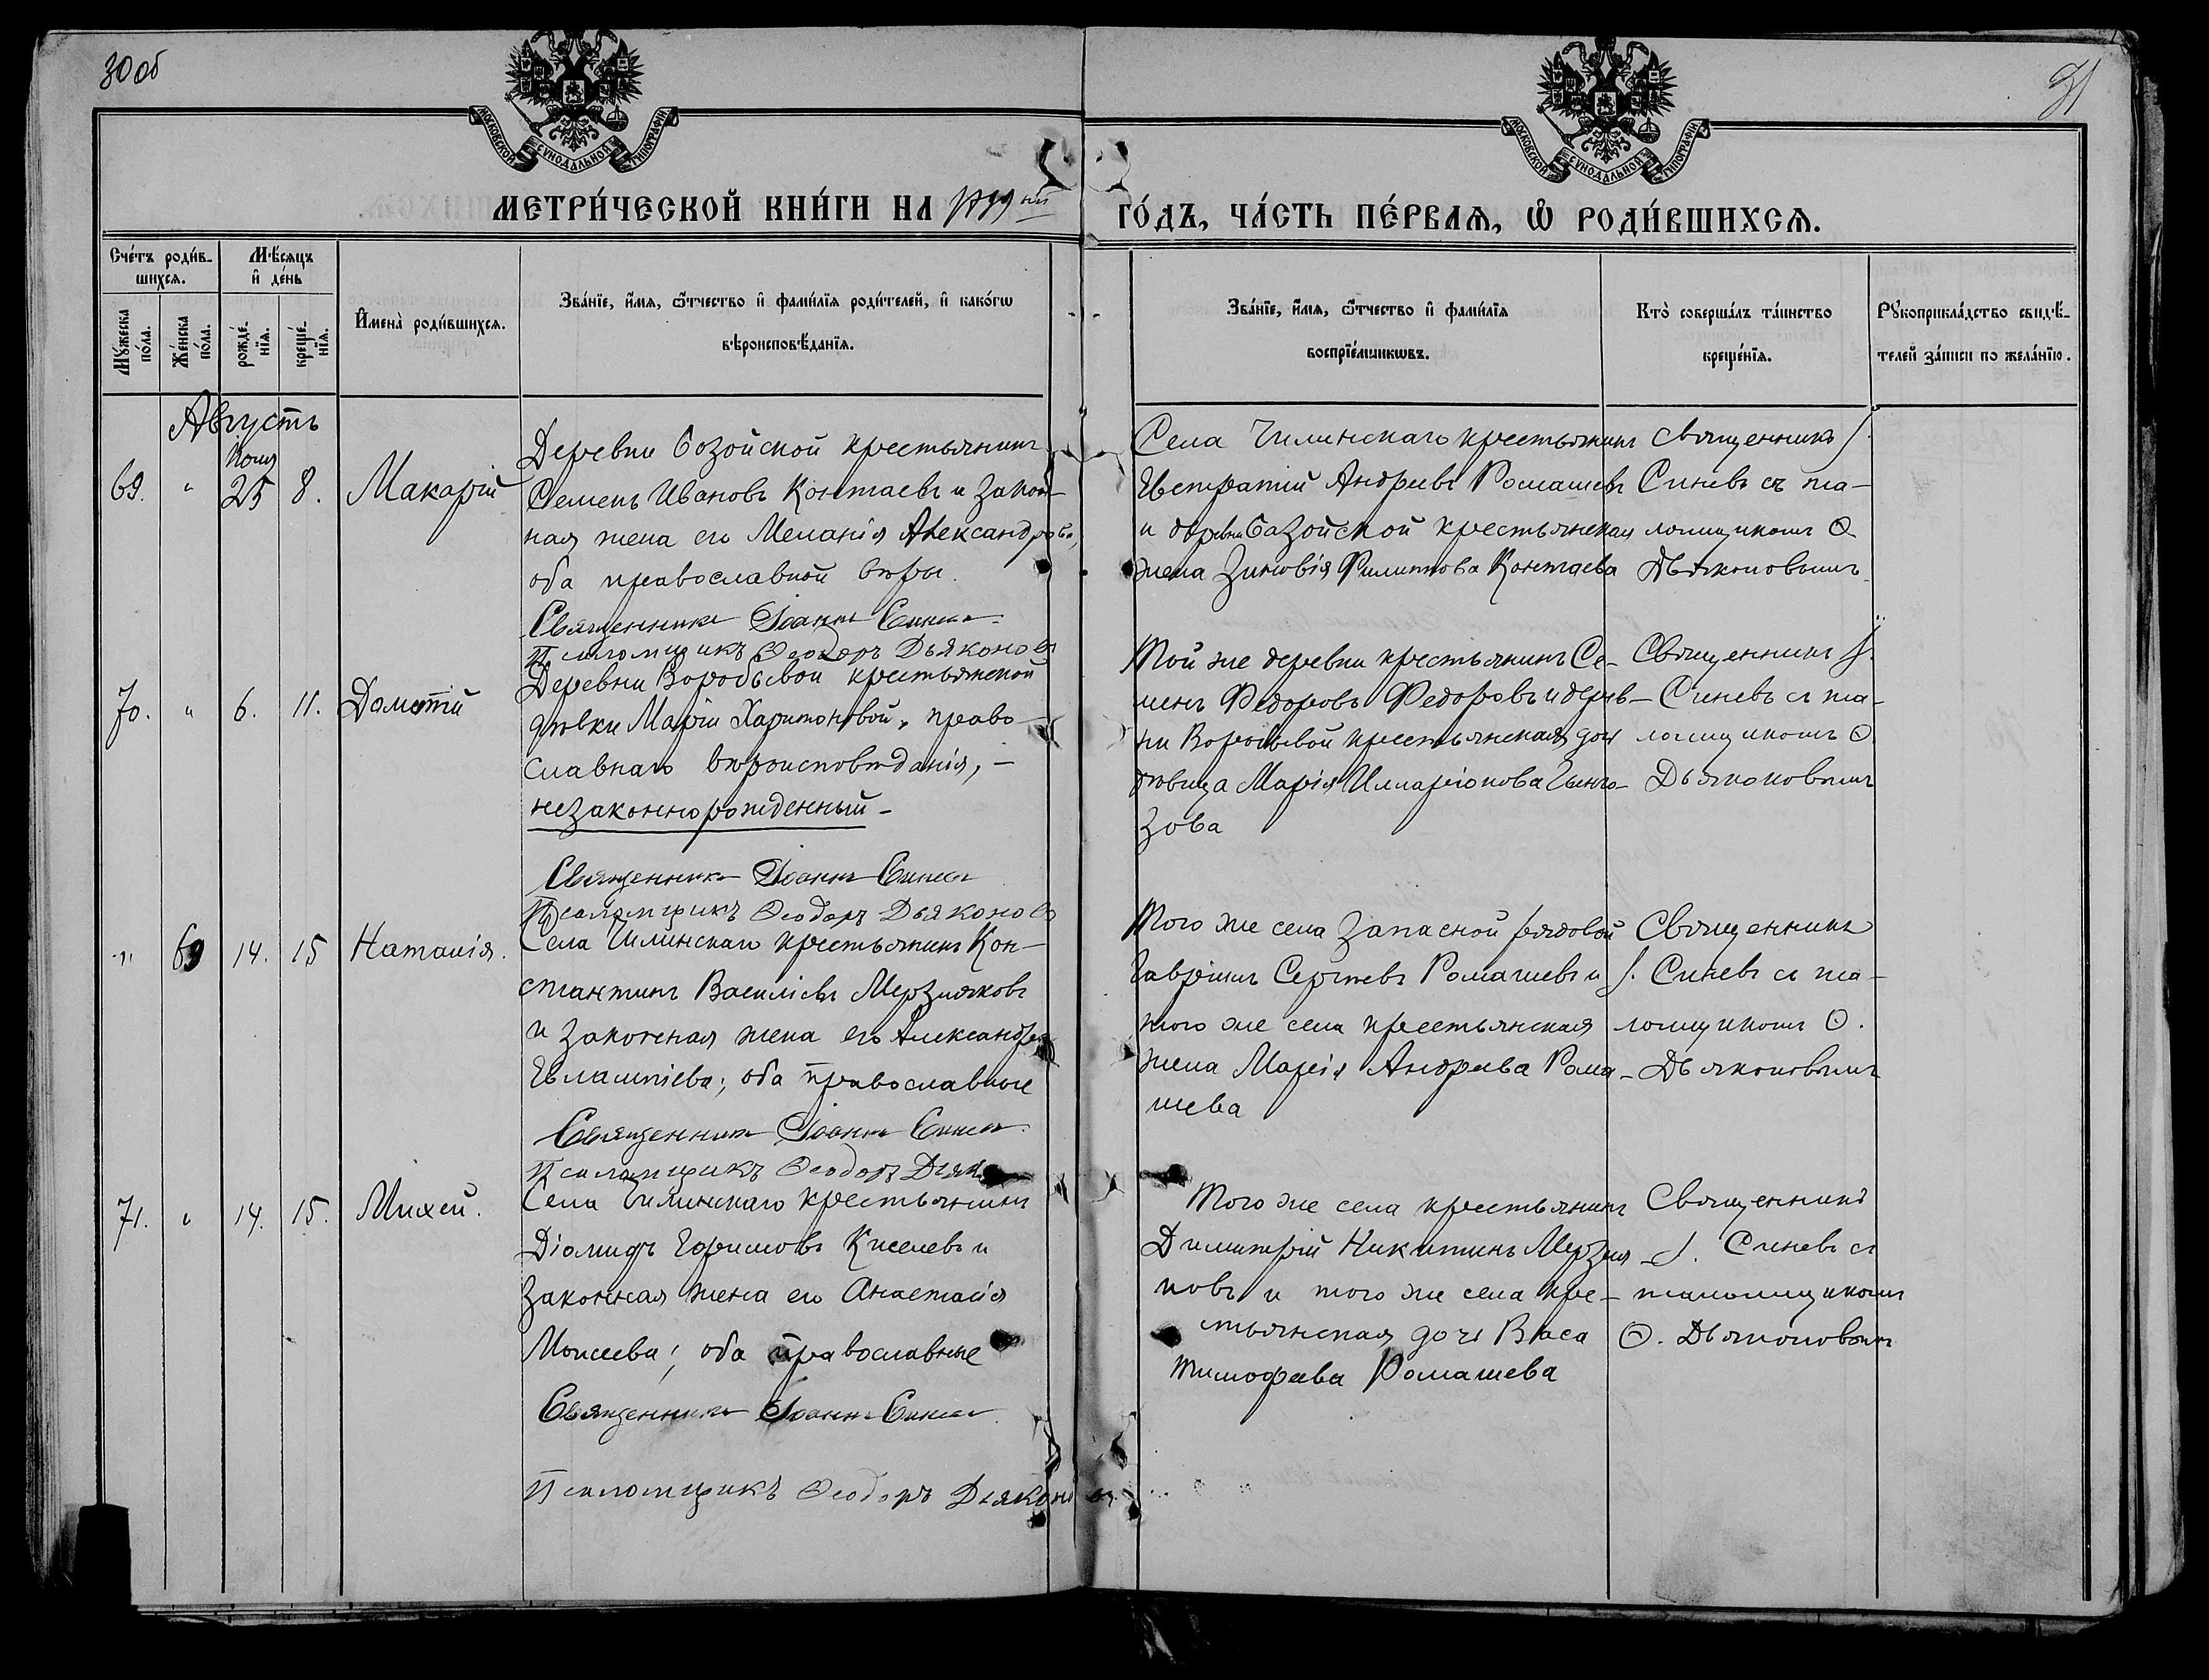 30 об
31
МОСКОВСКОЙ СѴНОДАЛЬНОЙ ТИПОГРАФІИ
МОСКОВСКОЙ СѴНОДАЛЬНОЙ ТИПОГРАФІИ
МЕТРИ́ЧЕСКОЙ КНИ́ГИ НА
ГО́ДЪ, ЧА́СТЬ ПЕ́РВАѦ, Ѡ РОДИ́ВШИХСѦ.
Сче́тъ роди́в-
шихсѧ.
Мѣ́сяцъ
и де́нь
Мꙋ́жеска
по́ла.
Же́нска
по́ла.
рожде́-
нїѧ.
креще́-
нїѧ.
Имена̀ роди́вшихсѧ.
Зва́нїе, и́мѧ, ѻ́тчество и фами́лїѧ роди́телей, и како́гѡ
вѣроисповѣ́данїѧ.
Зва́нїе, и́мѧ, ѻ́тчество и фами́лїѧ
воспрїе́мникѡвъ.
Кто̀ соверша́лъ та́инство
креще́нїѧ.
Рꙋкоприкла́дство свидѣ́-
телей за́писи по жела́нїю.
Августъ
69. " 25 8. Макарій
Деревни Базойской крестьянинъ
Семенъ Ивановъ Контаевъ и закон-
ная жена его Меланія Александрова,
оба православной вѣры.
Священникъ Іоаннъ Синевъ
Псаломщикъ Ѳеодоръ Дьяконовъ
Села Чилинскаго крестьянинъ
Евстратій Андреевъ Ромашевъ
и деревни Базойской крестьянская
жена Зиновія Филиппова Контаева
Священникъ І.
Синевъ съ пса-
ломщикомъ Ѳ.
Дьяконовымъ
70. " 6. 11. Дометій
Деревни Воробьевой крестьянской
дѣвки Маріи Харитоновой, право-
славнаго вѣроисповѣданія, -
незаконнорожденный -
Священникъ Іоаннъ Синевъ
Псаломщикъ Ѳеодоръ Дьяконовъ
Той же деревни крестьянинъ Се-
менъ Федоровъ Федоровъ и дерев-
ни Воробьевой крестьянская дочь
дѣвица Марія Илларіонова
зова
Священникъ І.
Синевъ съ пса-
ломщикомъ Ѳ.
Дьяконовымъ
" 69 14. 15 Наталія.
Села Чилинскаго крестьянинъ Кон-
стантинъ Василіевъ Мерзляковъ
и законная жена его Александра
Евлампіева; оба православные
Священникъ Іоаннъ Синевъ
Псаломщикъ Ѳеодоръ
Того же села запасной рядовой
Гавріилъ Сергѣевъ Ромашевъ и
того же села крестьянская
жена Марія Андреева Рома-
шева
Священникъ
І. Синевъ съ пса-
ломщикомъ Ѳ.
Дьяконовымъ
71. " 14. 15. Михей.
Села Чилинскаго крестьянинъ
Діомидъ Киселевъ и
законная жена его Анастасія
Моисеева; оба православные
Священникъ Іоаннъ Синевъ
Псаломщикъ Ѳеодоръ Дьяконовъ
Того же села крестьянинъ
Димитрій Никитинъ Мерзля-
ковъ и того же села кре-
стьянская дочь Васса
Тимофеева Ромашева
Священникъ
І. Синевъ съ
псаломщикомъ
Ѳ. Дьяконовымъ